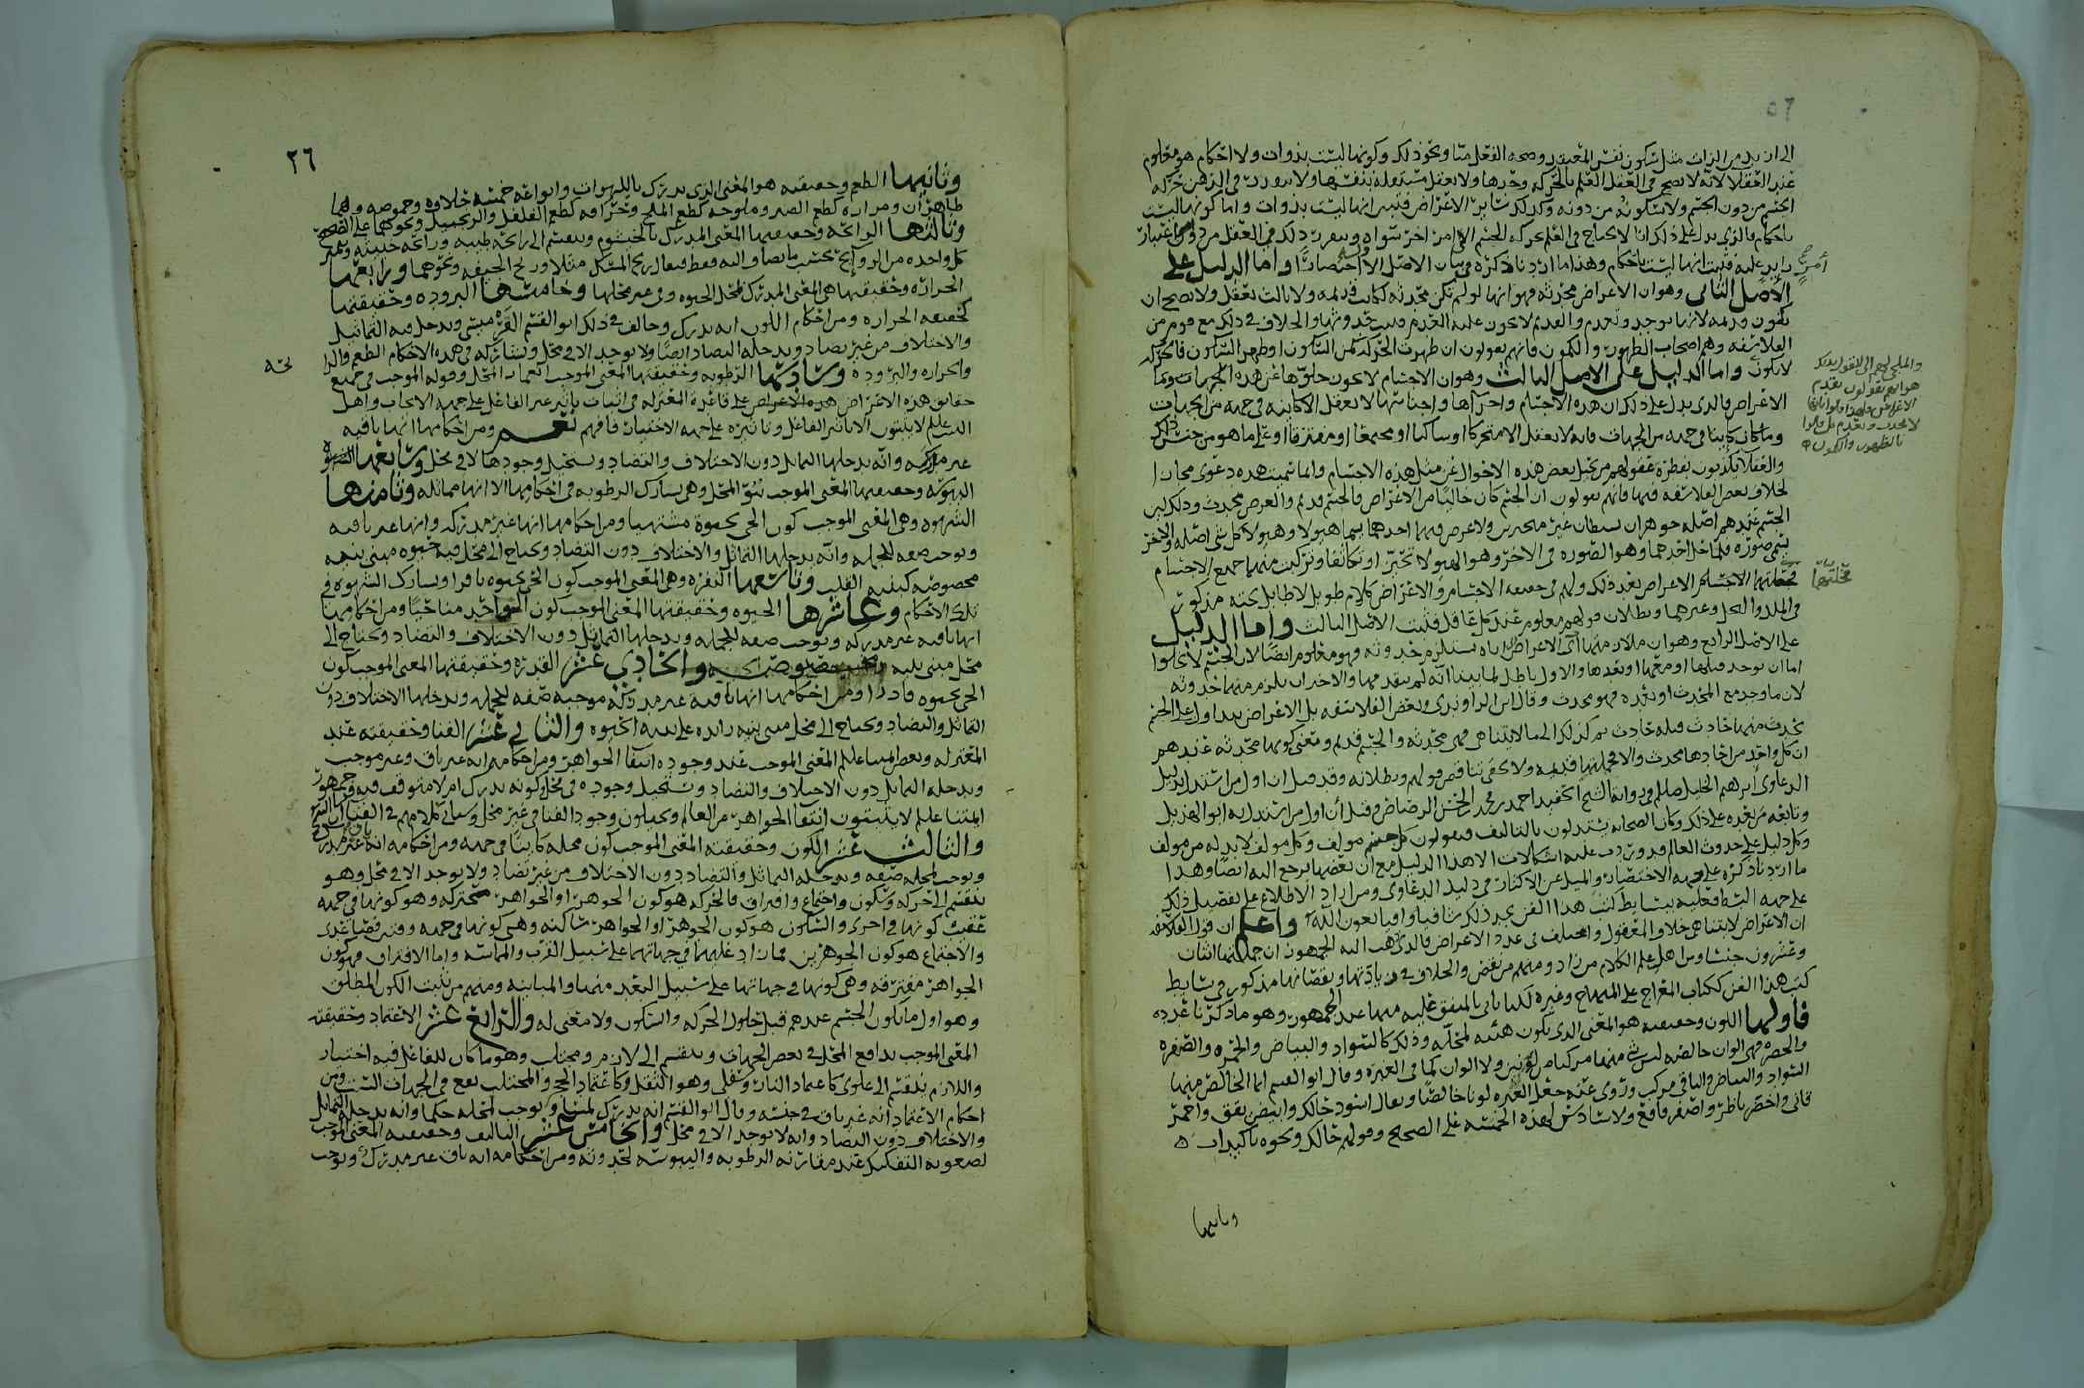 الى ان يدرك الذات مثل سكون نفس المعتقد وصحة الفعل منا ونحو ذلك وكونها ليست بذوات ولا احكام هو معلوم
عند العقلا لانه لا يصح في العقل العلم بالحركة وحدها ولا يعقل مستقلة بنفسها ولا يتصور في الذهن حركة
الجسم من دون الجسم ولا سكونه من دونه وكذلك سائر الاعراض فتبين انها ليست بذوات واما كونها ليست
باحكام فالذي يدل على ذلك انا لا نحتاج في العلم بحركة الجسم الى امر اخر سواه ويتقرر ذلك في العقل من دون اعتبار
زايد عليه فثبت انها ليست باحكام وهذا ما اردنا ذكره في بيان الاصل الاول اختصارا واما الدليل على
الاصل الثاني وهو ان الاعراض محدثة فهو انها لو لم تكن محدثة لكانت قديمة ولا ثالث يعقل ولا يصح ان
تكون قديمة لانها توجد وتعدم والقديم لا يجوز عليه العدم فثبت حدوثها والخلاف في ذلك مع قوم من
الفلاسفة وهم اصحاب الظهور والكمون فانهم يقولون ان ظهرت الحركة كمن السكون او ظهر السكون فالحركة
لا تكون واما الدليل على الاصل الثالث وهو ان الاجسام لا يجوز خلوها عن هذه
الاعراض فالذي يدل على ذلك ان هذه الاجسام واجزاها واجناسها لا تعقل الا كاينة في جهة من الجهات
وما كان كاينا في جهة من الجهات فانه لا يعقل الا متحركا او ساكنا او مجتمعا او مفترقا او على ما هو من جنس ذلك
والعقلا يكذبون بفطرة عقولهم من تخيل بعض هذه الاحوال عن مثل هذه الاجسام وانما سميت هذه دعوى مجازا
لخلاف بعض الفلاسفة فيها فانهم يقولون ان الجسم كان خاليا من الاعراض فالجسم قديم والعرض محدث وذلك لان
الجسم عندهم اصله جوهران بسيطان غير متحيزين ولا عرض فيهما احدهما يسما هيولا وهيولا كل شي اصله والاخر
يسمى صورة فلما حل احدهما وهو الصورة في الاخر وهو الهيولا تحيزا وتكاثفا وتركبت منهما جميع الاجسام
فحلتها الاعراض بعد ذلك ولهم في حقيقة الاجسام والاعراض كلام طويل لا طايل تحته مذكور
في الملل والنحل وغيرهما وبطلان قولهم معلوم عند كل عاقل فثبت الاصل الثالث واما الدليل
على الاصل الرابع وهو ان ملازمتها
اما ان يوجد قبلها او معها او بعدها والاول باطل لما بينا انه لم يتقدمها والاخران يلزم منهما حدوثه
لان ما وجد مع المحدث او بعده فهو محدث وقال ابن الراوندي وبعض الفلاسفة بل الاعراض
يحدث منها حادث قبله حادث ثم كذلك الى ما لا يتناهى فهي محدثة والجسم قديم ومعنى كونها محدثة عندهم
ان كل واحد من احادها محدث والا فجملتها قديمة ولا يخفى تناقض قولهم وبطلانه وقد قيل ان اول من استدل بدليل
الدعاوى ابراهيم الخليل صلعم وفي رواية الشيخ الحفيد احمد بن محمد بن الحسن الرصاص وقيل ان اول من استدل به ابو الهذيل
وتابعه من بعده على ذلك وكان الصحابة يستدلون بالتاليف فيقولون كل جسم مولف وكل مولف لابد له من مولف
وكل دليل على حدوث العالم قد وردت عليه اشكالات الا هذا الدليل مع ان بعضها يرجع اليه ايضا وهذا
ما اردنا ذكره على وجه الاختصار والميل عن الاكثار في دليل الدعاوى ومن اراد الاطلاع على تفصيل ذلك
على جهة البسط فعليه ببسايط كتب هذا الفن يجد ذلك شافيا وافيا بعون الله واعلم ان قول الفلاسفة
ان الاعراض لا تتناهى خلاف المعقول واختلف في عدد الاعراض فالذي ذهب اليه الجمهور ان جملتها اثنان
وعشرون جنسا ومن اهل علم الكلام من زاد ومنهم من نقص والخلاف في زيادتها ونقصانها مذكور في بسايط
كتب هذا الفن ككتاب المعراج على المنهاج وغيره لكنا ناتي بالمتفق عليه منها عند الجمهور وهو ما ذكرنا عدده
فاولها اللون وحقيقته هو المعنى الذي تكون هيئه لمحله وذلك كالسواد والبياض والحمرة والصفرة
والخضرة فهي الوان خالصة ليس شي منها مركبا من لونين ولا الوان كما في الغبرة وقال ابو القسم انما الخالص منها
السواد والبياض والباقي مركب وروي عنه جعل الغبرة لونا خالصا ويقال اسود حالك وابيض يقق واحمر
قاني واخضر ناظر واصفر فاقع ولا سادس لهذه الخمسة على الصحيح وقولهم حالك ونحوه تاكيدات
وثانيها
٢٦
وثانيها الطعم وحقيقته هو المعنى الذي يدرك باللهوات وانواعه خمسة حلاوة وحموضة وهما
ظاهران ومرارة كطعم الصبر وملوحة كطعم الملح وحرافة كطعم الفلفل والزنجبيل ونحوهما على الصحيح
وثالثها الرائحة وحقيقتها المعنى المدرك بالخيشوم وينقسم الى رائحة طيبة ورائحة خبيثة
كل واحدة من الروايح بحسب ما يضاف اليه فقط فيقال ريح المسك مثلا وريح الجيفة ونحوهما ورابعها
الحرارة وحقيقتها هي المعنى المدرك بمحل الحيوة وفي غير محلها وخامسها البرودة وحقيقتها
كحقيقة الحرارة ومن احكام اللون انه يدرك وخالف في ذلك ابو القسم ويدخل فيه التماثل
والاختلاف من غير تضاد ويدخله التضاد ايضا ولا يوجد الا في محل ويشاركه في هذه الاحكام الطعم
والحرارة والبرودة وسادسها الرطوبة وحقيقتها المعنى الموجب المحل وقوله الموجب في جميع
حقايق هذه الاعراض هذه الاعراض على قاعدة المعتزلة في اثبات تاثير غير الفاعل على جهة الايجاب واهل
البيت علم لا يثبتون الا تاثير الفاعل وتاثيره على جهة الاختيار فافهم نعم ومن احكامها انها باقية
غير مدركة وانه يدخلها التماثل دون الاختلاف والتضاد ويستحيل وجودها لا في محل وسابعها
اليبوسة وحقيقتها المعنى الموجب المحل وهي تشارك الرطوبة في احكامها الا انها مماثله وثامنها
الشهوة وهي المعنى الموجب كون الحي بحيوة مشتهيا ومن احكامها انها غير مدركة وانها غير باقية
وتوجب صفة للجملة وانه يدخلها التماثل والاختلاف دون التضاد وتحتاج الى محل فيه حيوة مبني بنية
مخصوصة كبنية القلب وتاسعها النفرة وهي المعنى الموجب كون الحي بحيوة نافرا وتشارك الشهوة في
تلك الاحكام وعاشرها الحيوة وحقيقتها المعنى الموجب كون الواحد منا حيا ومن احكامها
انها باقية غير مدركة وتوجب صفة للجملة ويدخلها التماثل دون الاختلاف والتضاد وتحتاج الى
محل مبني بنية والحادي عشر القدرة وحقيقتها المعنى الموجب كون
الحي بحيوة قادرا ومن احكامها انها باقية غير مدركة موجبة صفة للجملة ويدخلها الاختلاف دون
التماثل والتضاد وتحتاج الى محل مبني بنية زايدة على بنية الحيوة والثاني عشر الفنا وحقيقته عند
المعتزلة وبعض ايمتنا عليلم المعنى الموجب عند وجوده انتفا الجواهر ومن احكامه انه غير باق وغير موجب
ويدخله التماثل دون الاختلاف والتضاد ويستحيل وجوده في محل وكونه يدرك ام لا متوقف فيه وجمهور
ايمتنا علم لا يثبتون انتفا الجواهر من العالم ويحيلون وجود الفنا في غير محل وسياتي كلامهم في الفنا
والثالث عشر الكون وحقيقته المعنى الموجب كون محله كاينا في جهة ومن احكامه انه غير مدرك
ويوجب لمحله صفة ويدخله التماثل والتضاد دون الاختلاف من غير تضاد ولا يوجد الا في محل وهو
ينقسم الى حركة وسكون واجتماع وافتراق فالحركة هو كون الجوهر او الجواهر متحركة وهو كونها في جهة
عقيب كونها في اخرى والسكون هو كون الجوهر او الجواهر ساكنة وهي كونها في جهة وقتين فصاعدا
والاجتماع هو كون الجوهرين فما زاد عليهما في جهاتهما على سبيل القرب والمماسة واما الافتراق فهو كون
الجواهر مفترقة وهي كونها في جهاتها على سبيل البعد منهما والمباينة ومنهم من يثبت الكون المطلق
وهو اول ما يكون الجسم عندهم قبل حلول الحركة والسكون ولا معنى له والرابع عشر الاعتماد وحقيقته
المعنى الموجب تدافع المحل في بعض الجهات وينقسم الى لازم ومجتلب وهو ما كان للفاعل فيه اختيار
واللازم ينقسم الى علوي كاعتماد النار وسفلي وهو الثقل وكاعتماد الحجر والمجتلب يقع في الجهات الست ومن
احكام الاعتماد انه غير باق في جنسه وقال ابو القسم انه يدرك لمسا ويوجب لمحله حكما وانه يدخله التماثل
والاختلاف دون التضاد وانه لا يوجد الا في محل والخامس عشر التاليف وحقيقته المعنى الموجب
لصعوبة التفكيك عند مقارنة الرطوبة واليبوسة لحدوثه ومن احكامه انه باق غير مدرك ويوجب